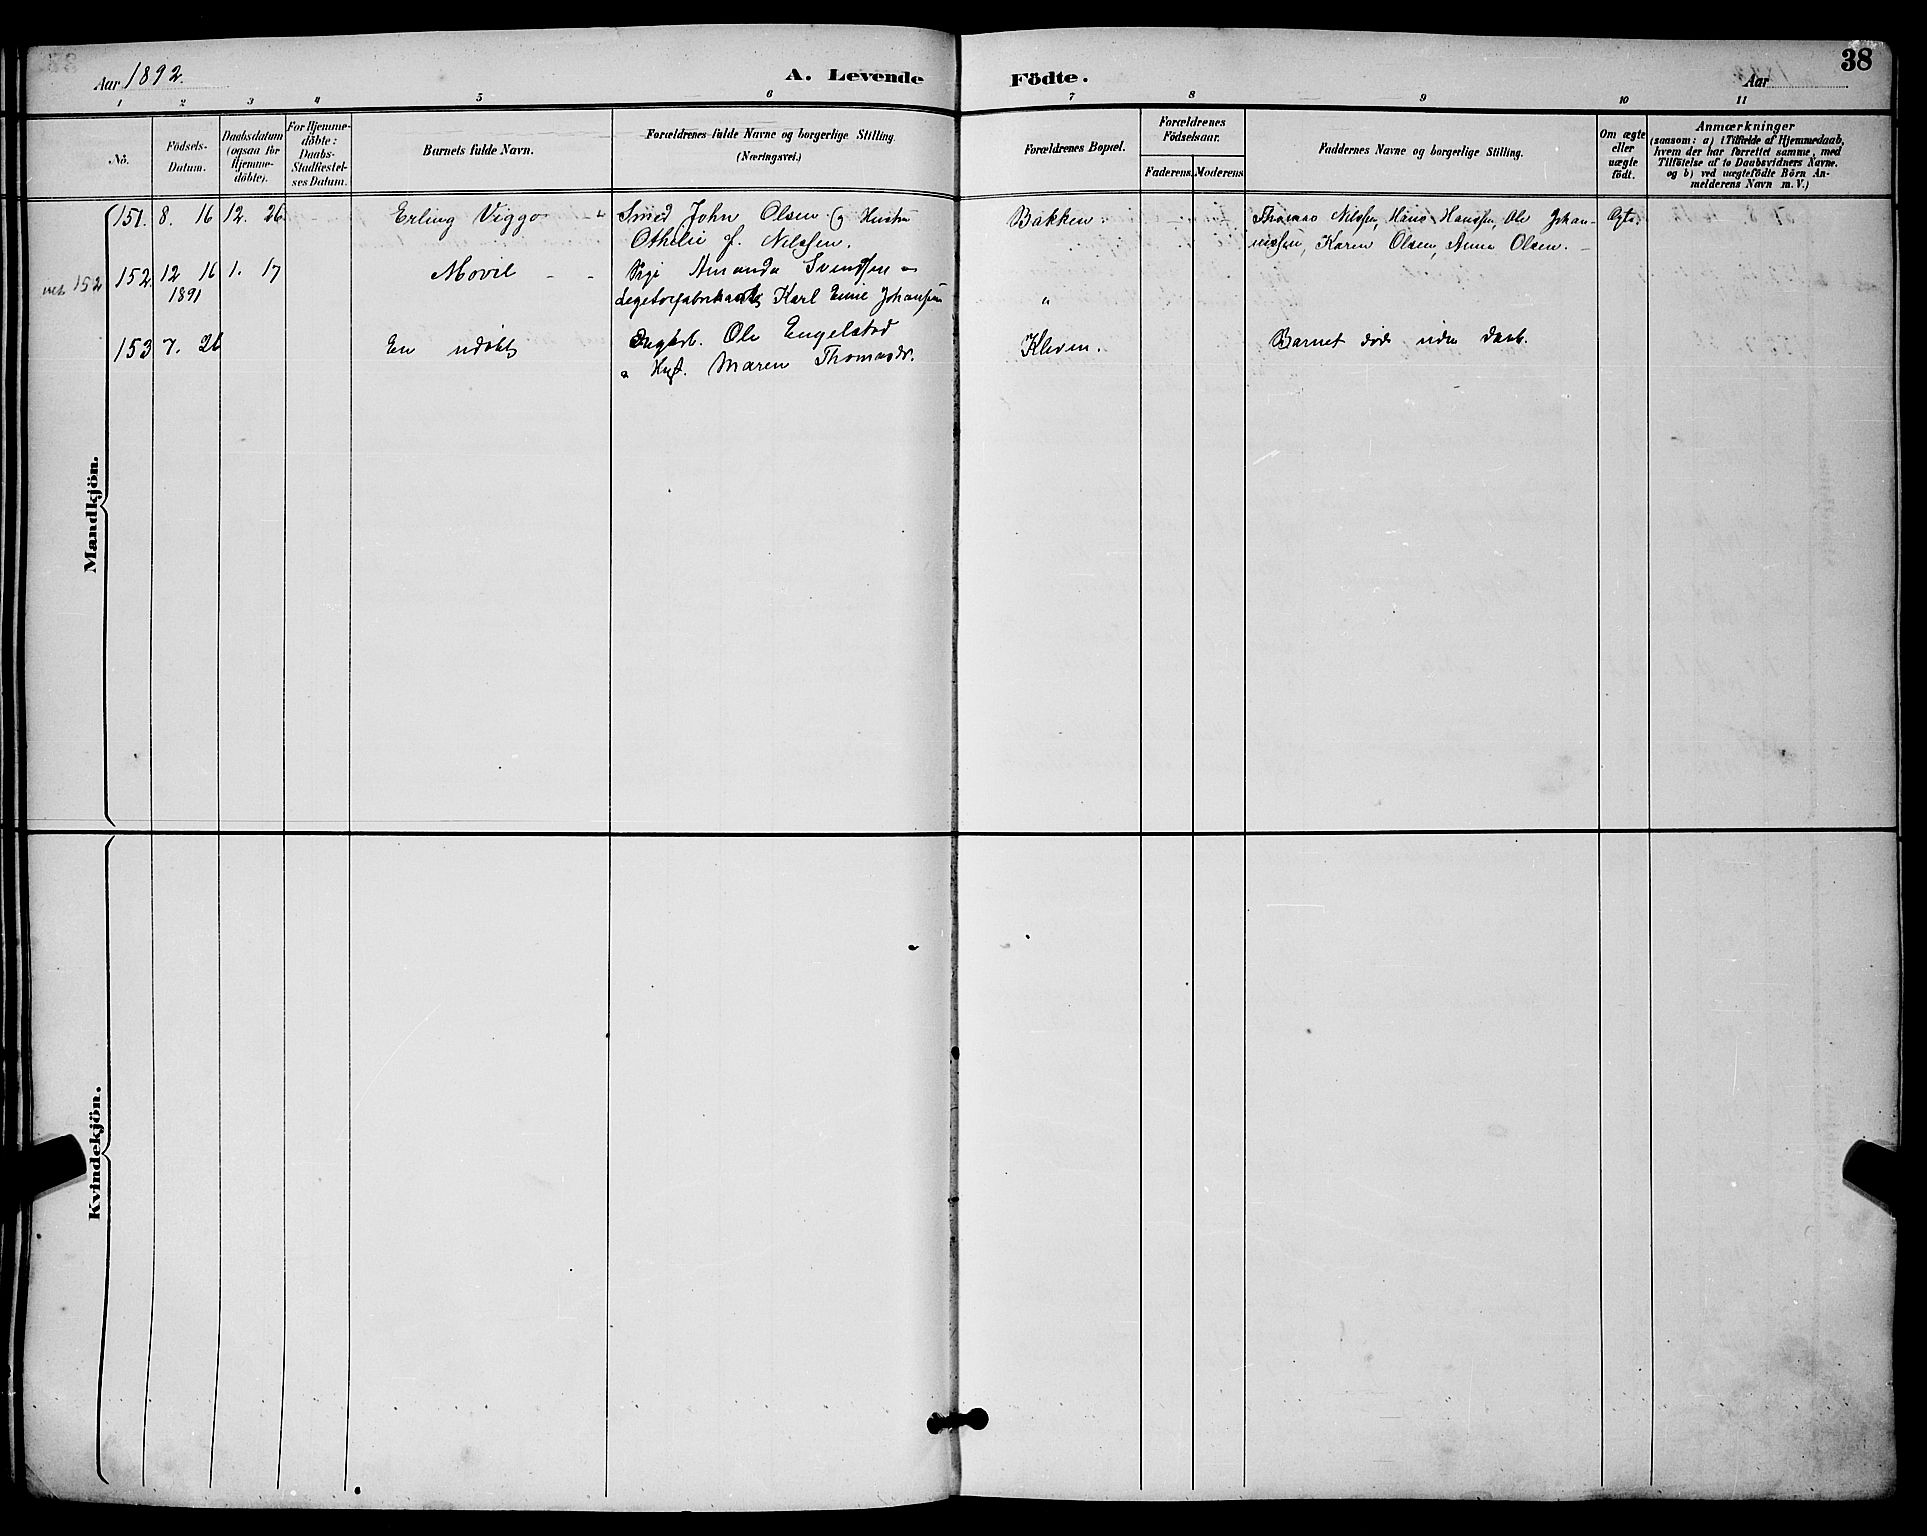 Aar 1892.
A. Levende Födte.
Aar
38
1 2 3 4 5 6 7 8 9 10 11
No.
Födsels-
Datum.
Daabsdatum
(ogsaa for
Hjemme-
döbte).
For Hjemme-
döbte:
Daabs-
Stadfestel-
ses Datum.
Barnets fulde Navn.
Forældrenes fulde Navne og borgerlige Stilling.
(Næringsvei.)
Forældrenes Bopæl.
Forældrenes
Födselsaar.
Faderens. Moderens.
Faddernes Navne og borgerlige Stilling.
Om ægte
eller
uægte
födt.
Anmærkninger
(saasom: a) i Tilfælde af Hjemmedaab,
hvem der har forrettet samme, med
Tilföielse af to Daabsvidners Navne,
og b) ved uægtefödte Börn An-
melderens Navn m. V.)
Mandkjön.
151. 8. 16 12. 26 Erling Viggo Smed John Olsen og Hustru Bakken. Thomas Nilssen, Hans Hanssen, Ole Johan- Ægte.
Othelie f. Nilssen. nessen, Karen Olsen, Anna Olsen.
152
152. 12 16 1. 17 Movil Pige Amanda Svendsen
1891 Legetøifabrikant Karl Emil Johansen "
153 7. 26 En udøbt Ole Engelstad Kleven. Barnet døde uden daab.
Maren Thomasdr.
Kvindekjön.